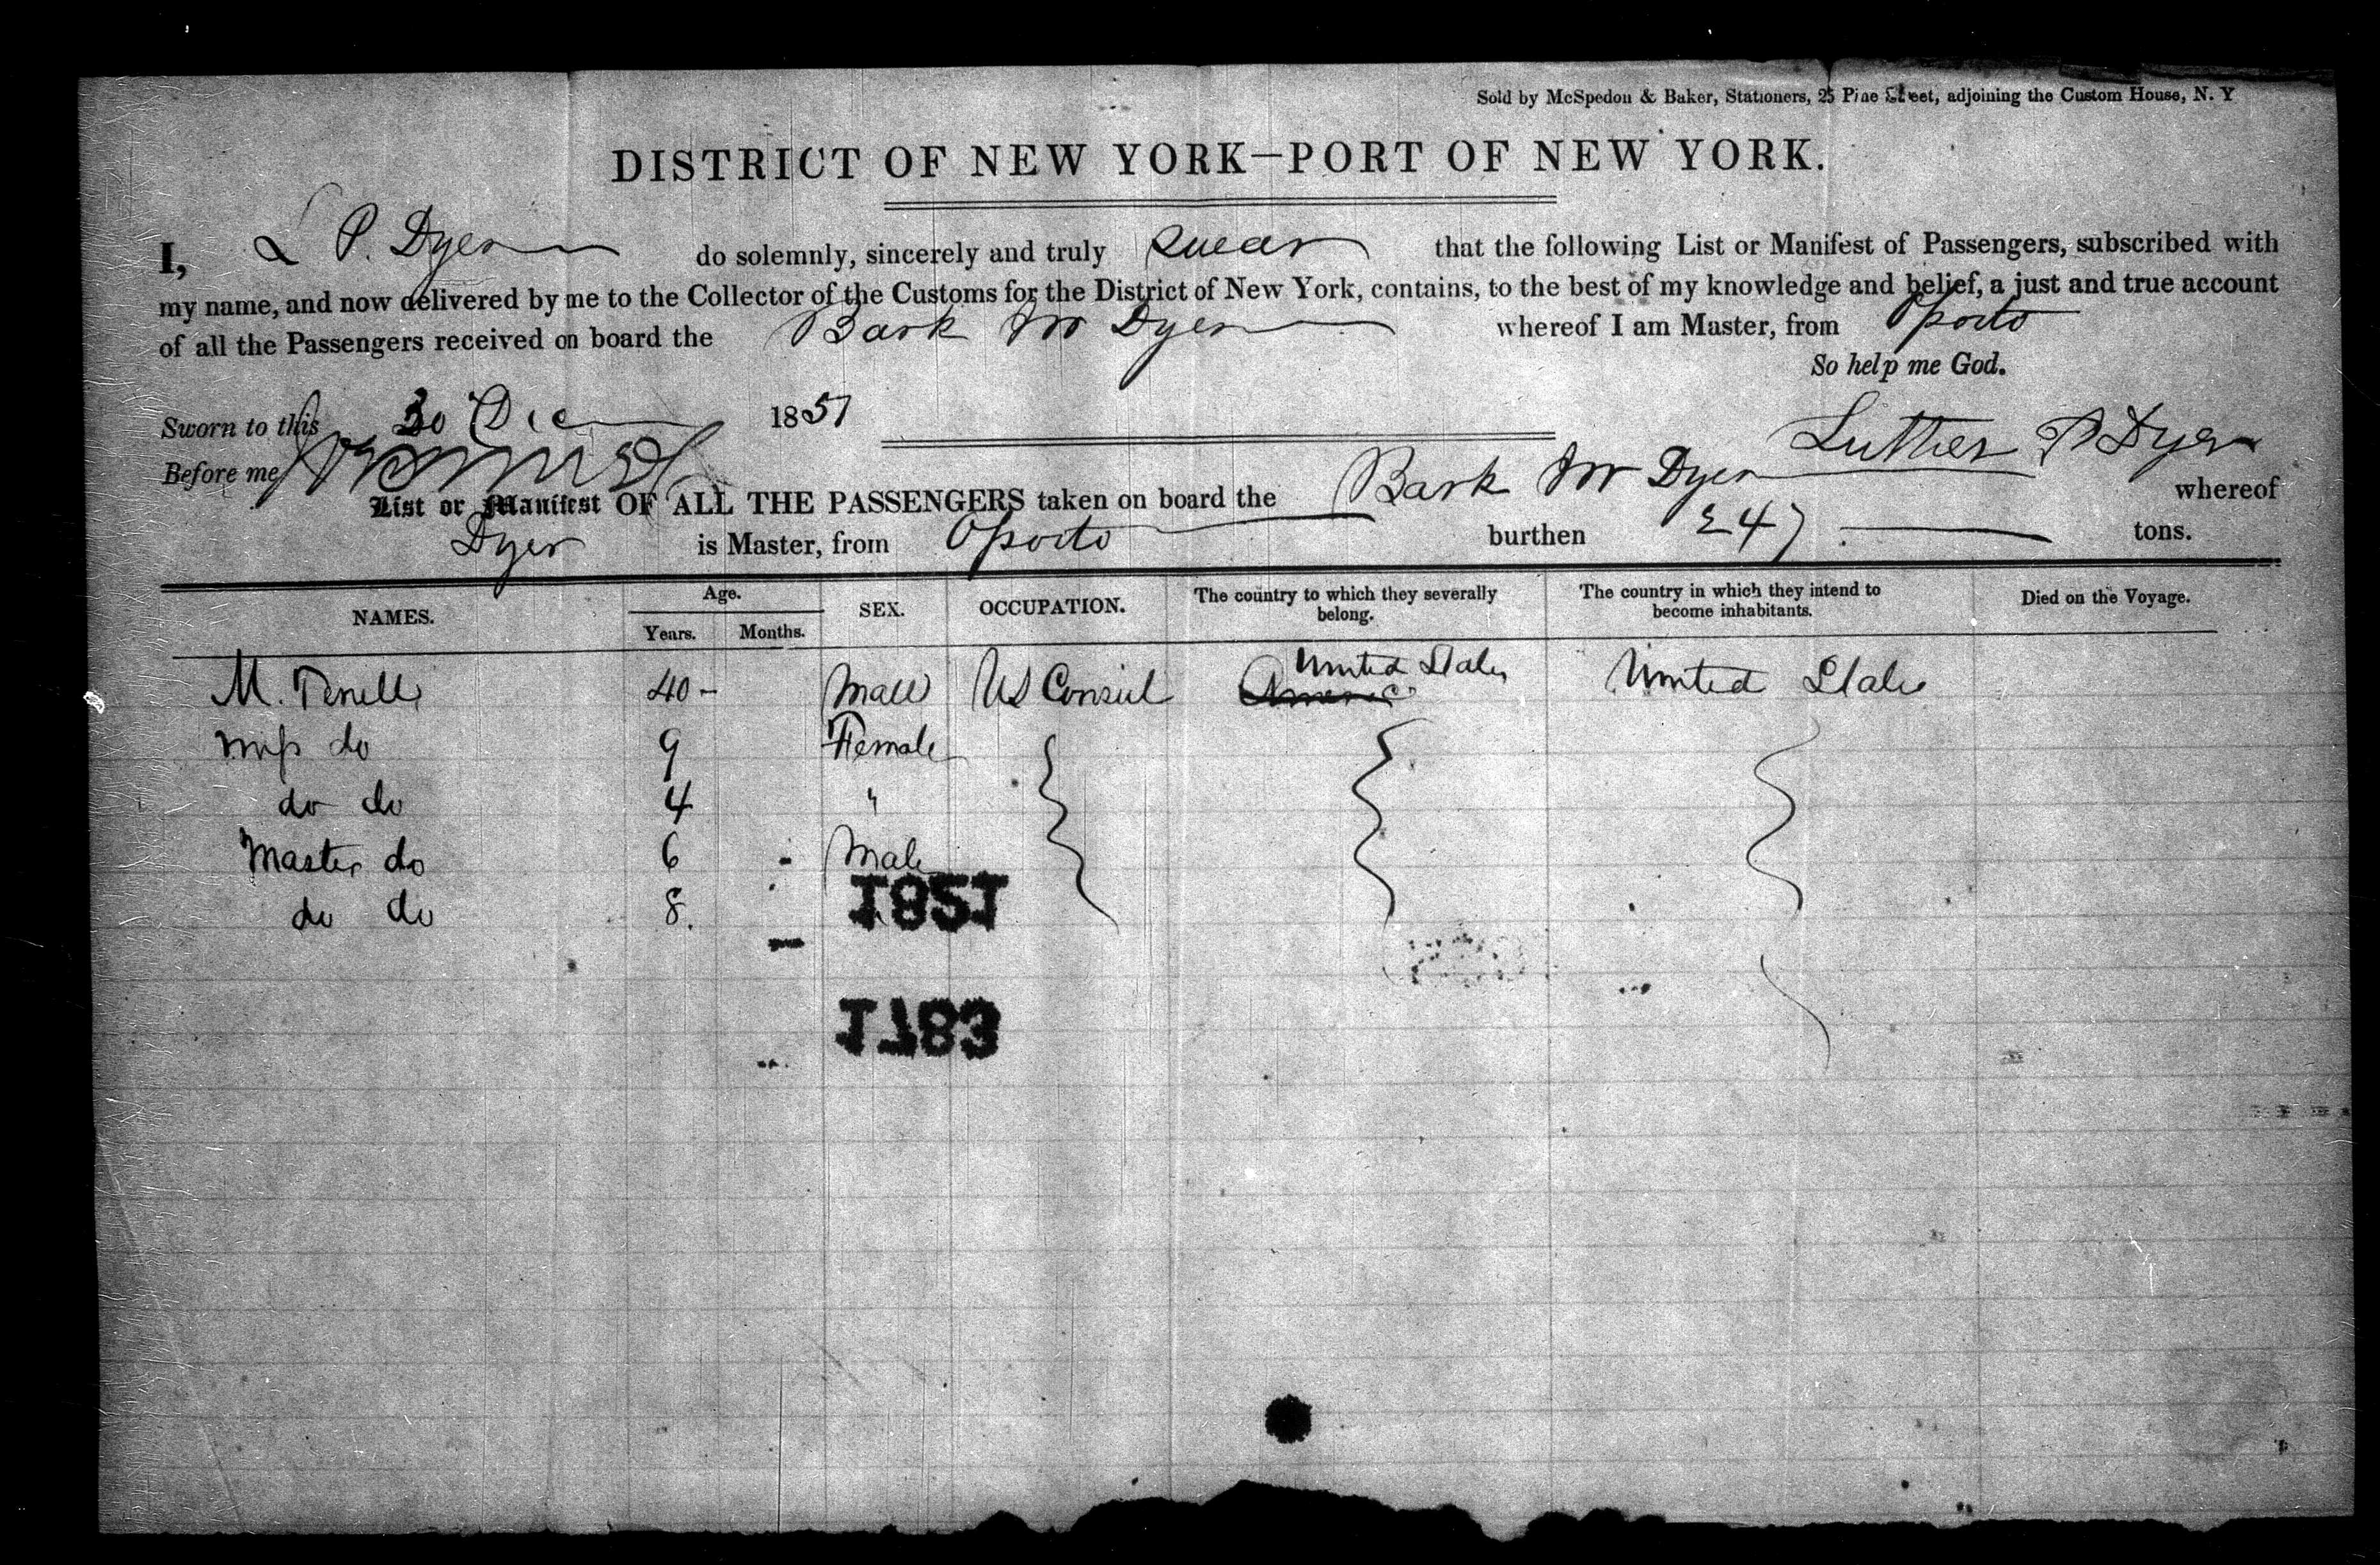 Sold by McSpedon & Baker, Stationers, 25 Pine Street, adjoining the Custom House, N. Y
DISTRICT OF NEW YORK—PORT OF NEW YORK.
I, L P. Dyer do solemnly, sincerely and truly swear that the following List or Manifest of Passengers, subscribed with
my name, and now delivered by me to the Collector of the Customs for the District of New York, contains, to the best of my knowledge and belief, a just and true account
of all the Passengers received on board the Bark M Dyer whereof I am Master, from Oporto
So help me God.
Sworn to this 30 Dec 1851
Luther P Dyer
Before me
List or Manifest OF ALL THE PASSENGERS taken on board the Bark M Dyer whereof
Dyer is Master, from Oporto burthen 247 tons.
NAMES. Age. Years. Months. SEX. OCCUPATION. The country to which they severally belong. The country in which they intend to become inhabitants. Died on the Voyage.
M. 40 - Male US Consul United States United States
Miss do 9 Female
do do 4 "
Master do 6 Male
do do 8.
1851
1783